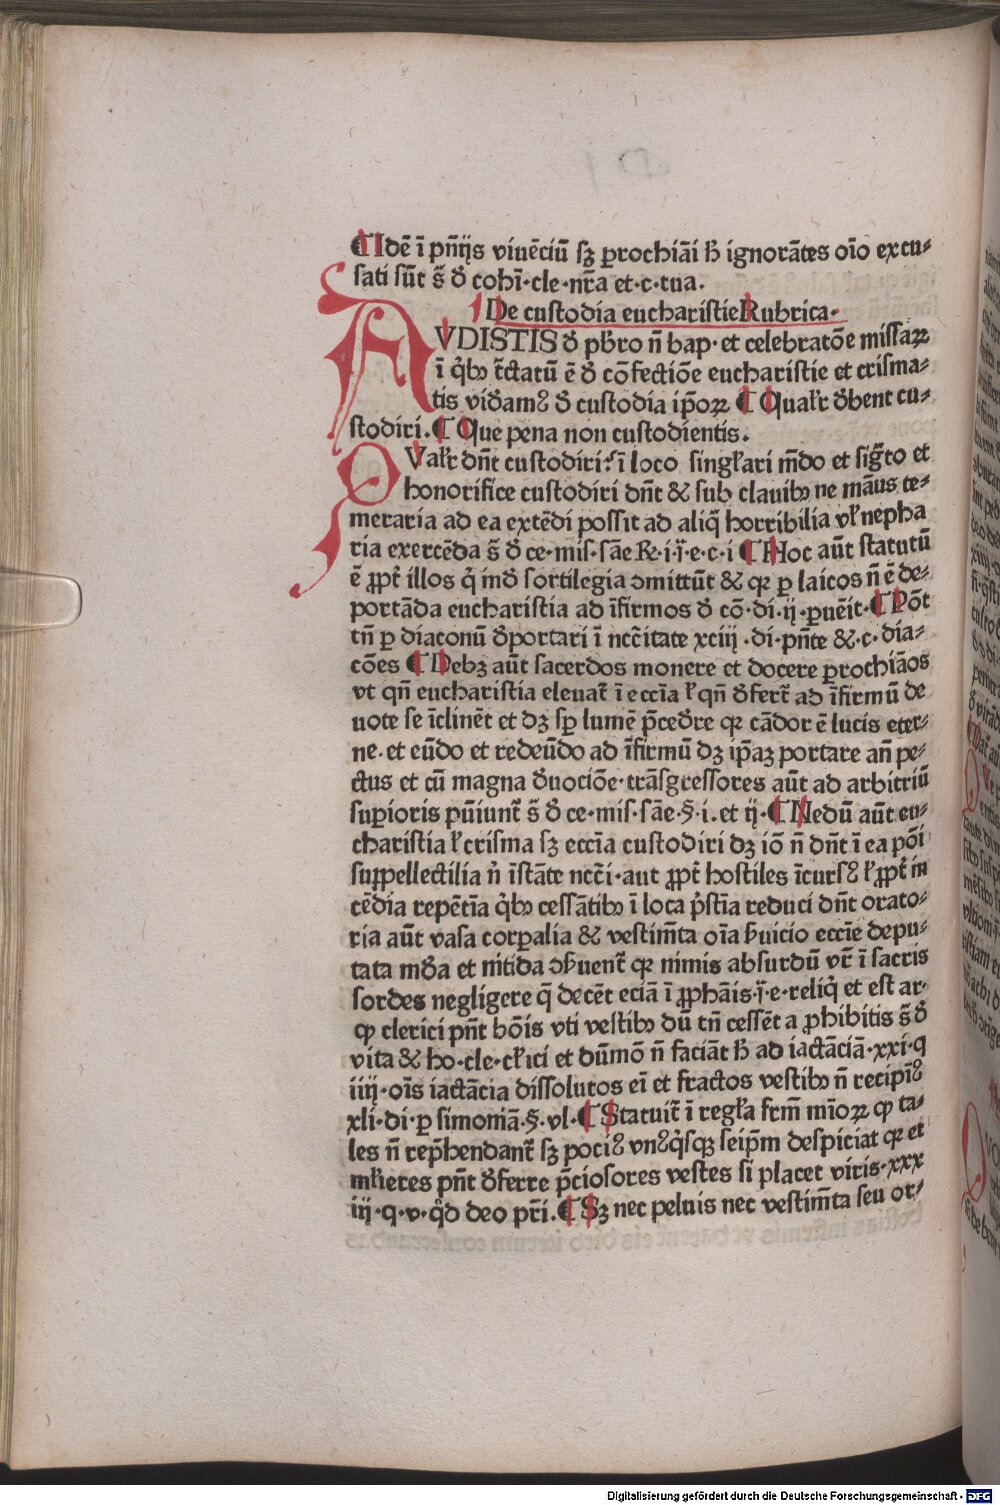 ¶ Idē ī pn̄ijs viuēciū sꝫ ꝑrochiāi ħ ignorātes oīo excu⸗
sati sūt s̄ đ cohī·cle·nr̄a et·c·tua.
De custodia eucharistie Rubrica·
AVDISTIS đ pƀro n̄ bap·et celebratōe missaꝝ
ī qⁱbꝫ tc̄tatū ē đ cōfectiōe eucharistie et crisma⸗
tis viđamꝰ đ custodia ip̄oꝝ ¶ Qualr̄ đbent cu⸗
stodiri. ¶ Que pena non custodientis.
QValr̄ dn̄t custodiri: ī loco singl̄ari mō̄do et sigr̄to et
honorifice custodiri dn̄t & sub clauibꝫ ne māus te⸗
meraria ad ea extēdi possit ad aliq̄ horribilia vl̄ nepha
ria exercēda s̄ đ ce·mis·sāe R·i·ī·e·c·i ¶ Hoc aūt statutū
ē ꝓpt̄ illos qⁱ mđ sortilegia ɔmittūt & qꝫ ꝑ laicos n̄ ē de⸗
portāda eucharistia ad īfirmos đ cō·di·ij·ꝑuēit· ¶ Pōt
tn̄ ꝑ diaconū đportari ī ncc̄itate xciij·di·pn̄te &·c·dia⸗
cōes ¶ Debꝫ aūt sacerdos monere et docere ꝑrochiāos
vt qn̄ eucharistia eleuat̄ ī eccīa l̄ qn̄ đfert̄ ad īfirmū de
uote se īclinēt et dꝫ sꝑ lumē p̄ceđre qꝫ cādor ē lucis eter⸗
ne·et eūdo et redeūdo ad īfirmū dꝫ ip̄aꝫ portare an̄ pe⸗
ctus et cū magna đuociōe·trāsgressores aūt ad arbitriū
suꝑioris pūiunt̄ s̄ đ ce·mis·sāe·§·i·et ij· ¶ Nedū aūt eu⸗
charistia l̄ crisma sꝫ eccīa custodiri dꝫ iō n̄ dn̄t ī ea pōi
suppellectilia nⁱ īstāte ncc̄i·aut ꝓpt̄ hostiles īcursꝰ l̄ ꝓpt̄ in
cēdia repētīa qⁱbꝫ cessātibꝫ ī loca pⁱstīa reduci dn̄t orato⸗
ria aūt vasa corꝑalia & vestim̄ta oīa ƀuicio eccīe depu⸗
tata mđa et nitida ɔƀuent̄ qꝫ nimis absurdū vr̄ ī sacris
sordes negligere q̄ decēt eciā ī ꝓphāis·ī·e·reliqⁱ et est ar·
ꝙ clerici pn̄t bōis vti vestibꝫ dū tn̄ cessēt a ꝓhibitis s̄ đ
vita & ho·cle·cl̄ici et dūmō n̄ faciāt ħ ad iactāciā·xxi·q
iiij·oīs iactācia dissolutos eī et fractos vestibꝫ n̄ recipīꝰ
xli·di·ꝑ simoniā·§·vl· ¶ Statuit̄ ī regl̄a frm̄ mīoꝝ ꝙ ta⸗
les n̄ rep̄hendant̄ sꝫ pociꝰ vnꝰqⁱsqꝫ seip̄m despiciat qꝫ et
ml̄ieres pn̄t đferre p̄ciosores vestes si placet viris·xxx
iij·q·v·qđ deo pr̄i. ¶ Sꝫ nec peluis nec vestim̄ta seu or⸗
Digitalisierung gefördert durch die Deutsche Forschungsgemeinschaft - DFG